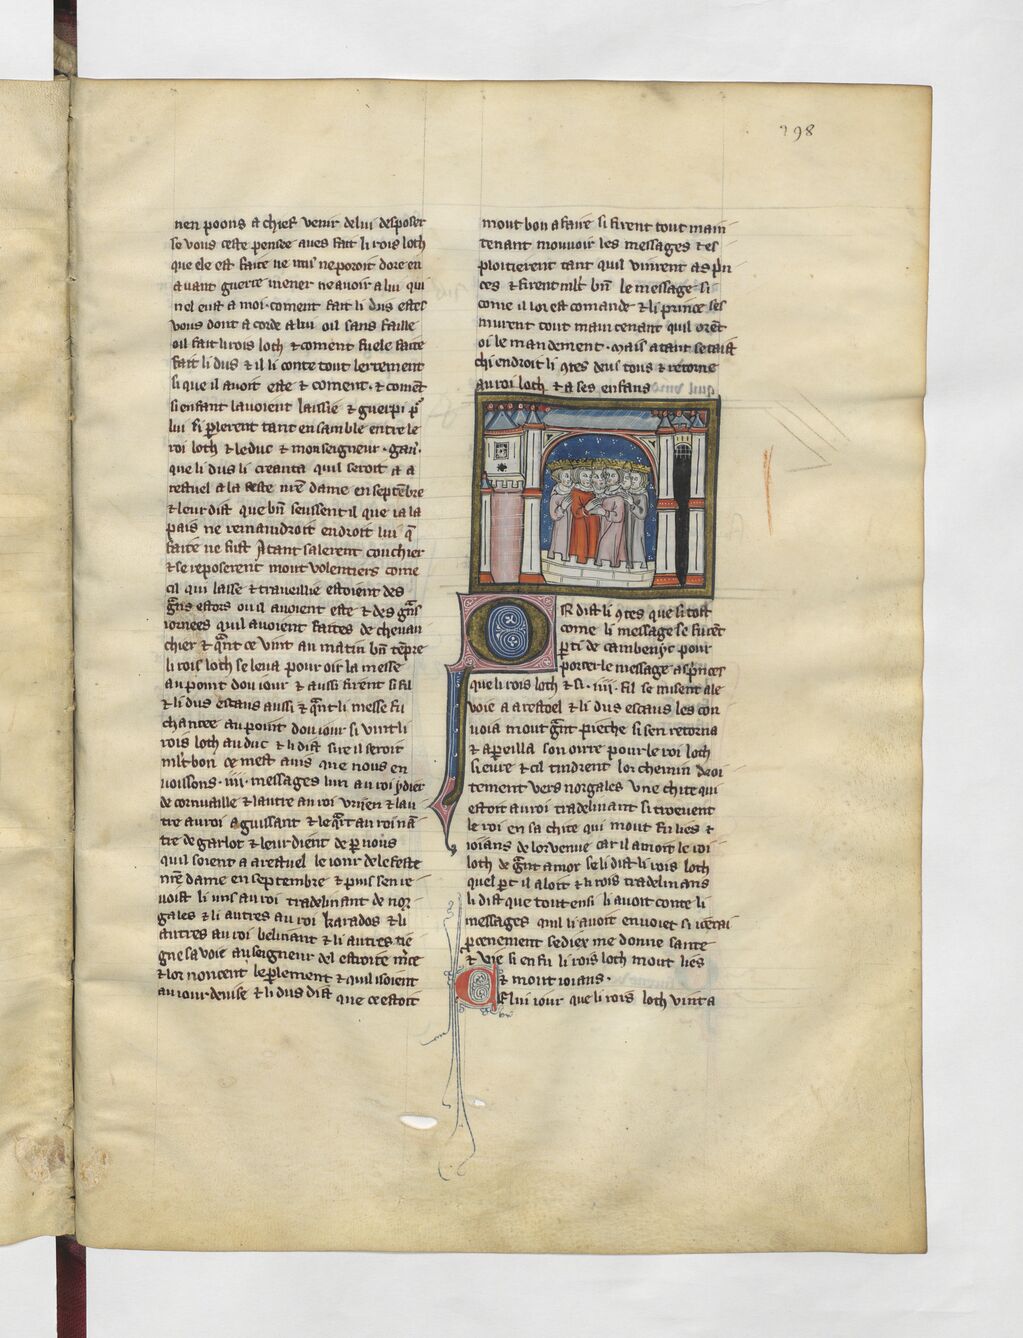 298
nen poons a chief venir de lui desposer
se vous ceste pensee aues fait li rois loth
que ele est faite ne ne poroit dore en
auant guerre mener ne auoir a lui qui
nel eust a moi · coment fait li dus estes
vous dont acorde a lui oil sans faille
oil fait li rois loth ⁊ coment fu ele faite
fait li dus ⁊ il li conte tout lerrement
si que il auoit este ⁊ coment · ⁊ comēt
si enfant lauoient laissie ⁊ guerpi p̄
lui si ꝑlerent tant ensamble entre le
roi loth ⁊ le duc ⁊ monseigneur · gau̾ ·
que li dus li creanta quil seroit a a
restuel a la feste nr̄e dame en septēbre
⁊ leur dist que bn̄ seussent il que ia la
pais ne remaindroit endroit lui q̄
faite ne fust Atant salerent couchier
⁊ se reposerent mout volentiers come
cil qui lasse ⁊ traueillie estoient des
gͣns estors ou il auoient este ⁊ des gͣns
iornees quil auoient faites de cheuau
chier ⁊ qͣnt ce vint au matin bn̄ tēpre
li rois loth se leua pour oir la messe
au point dou iour ⁊ aussi firent si fil
⁊ li dus escaus aussi ⁊ qͣnt li messe fu
chantee au point dou iour si vint li
rois loth au duc ⁊ li dist sire il seroit
ml̄t bon ce mest auis que nous en
uoissons · iiij · messages lun au roi ydier
de cornuaille ⁊ lautre au roi vrien ⁊ lau
tre au roi aguissant ⁊ le qͣrt au roi nā
tre de garlot ⁊ leur dient de ꝑ nous
quil soient a arestuel le iour de le feste
nr̄e dame en septembre ⁊ puis sen re
uoist li uns au roi tradelinant de nor
gales ⁊ li autres au roi karados ⁊ li
autres au roi belinant ⁊ li autres tie
gne sa voie au seigneur del estroite m̄ce
⁊ lor noncent le ꝑlement ⁊ quil i soient
au iour deuise ⁊ li dus dist que ce estoit
mout bon a faire si firent tout main
tenant mouuoir les messages ⁊ es
ploitierent tant quil vinrent as p̄n
ces ⁊ firent ml̄t bn̄ le message si
come il lor est comande ⁊ li prince ses
murent tout maintenant quil orēt
oi le mandement · mais atant se taist
chi endroit li ꝯtes deus tous ⁊ retorne
au roi loth ⁊ a ses enfans
OR dist li ꝯtes que si tost
come li message se furēt
ꝑti de cambenyc pour
porter le message as p̄nces
que li rois loth ⁊ si · iiij · fil se misent a le
voie a arestoel ⁊ li dus escaus les con
uoia mout gͣnt pieche si sen retorna
⁊ aꝑeilla son oirre pour le roi loth
sieure ⁊ cil tindrent lor chemin droi
tement vers norgales vne chite qui
estoit au roi tradelinant si troeuent
le roi en sa chite qui mout fu lies ⁊
ioians de lor venue car il amoit le roi
loth de gͣnt amor se li dist li rois loth
quel ꝑt il aloit ⁊ li rois tradelinans
li dist que tout ensi li auoit conte li
messages quil li auoit enuoiet si i
ꝓcenement se diex me donne sante
⁊ vie si en fu li rois loth mout lies
⁊ mout ioians ·
CElui iour que li rois loth vint a